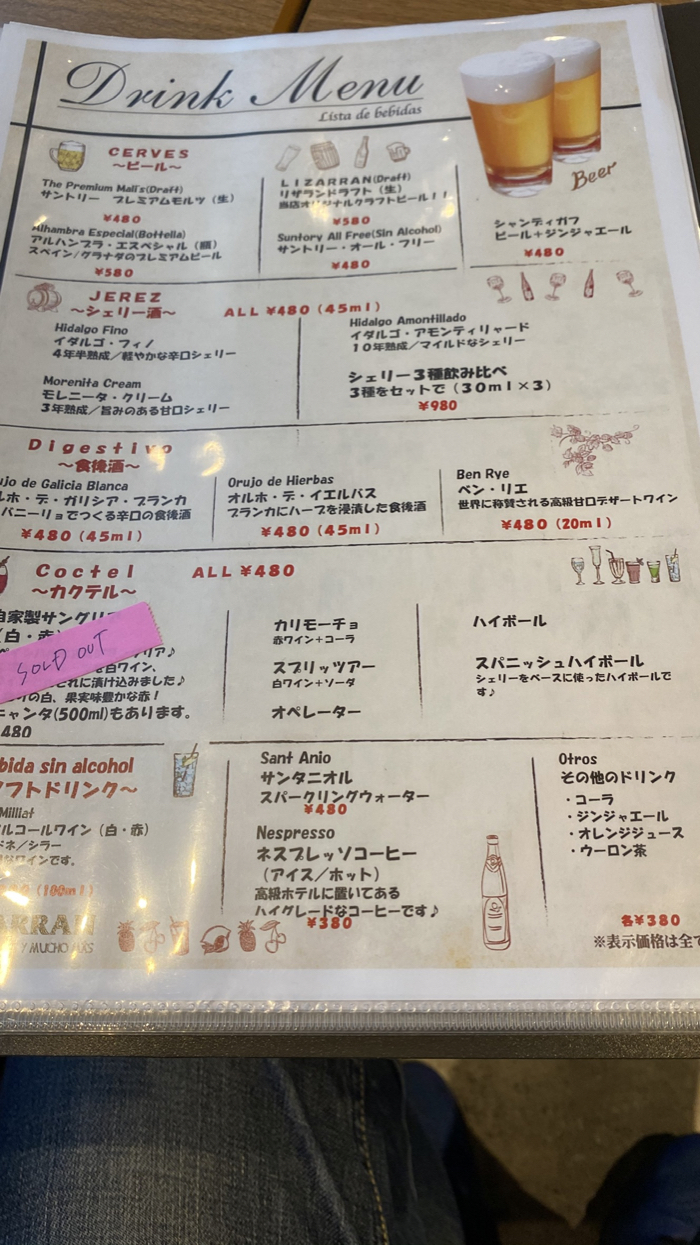 Drink Menu
Lista de bebidas
Beer
CERVES
～ビール～
The Premium Mall's(Draft)
サントリー　プレミアムモルツ（生）
¥480
Alhambra Especial(Bottella)
アルハンブラ・エスペシャル（瓶）
スペイン/グラナダのプレミアムビール
¥580
LIZARRAN(Draft)
リザランドラフト（生）
当店オリジナルクラフトビール！！
¥580
Suntory All Free(Sin Alcohol)
サントリー・オール・フリー
¥480
シャンディガフ
ビール＋ジンジャエール
¥480
JEREZ
～シェリー酒～
ALL ¥480（45ml）
Hidalgo Fino
イダルゴ・フィノ
4年半熟成／軽やかな辛口シェリー
Morenita Cream
モレニータ・クリーム
3年熟成／旨みのある甘口シェリー
Hidalgo Amontillado
イダルゴ・アモンティリャード
10年熟成／マイルドなシェリー
シェリー3種飲み比べ
3種をセットで（30ml×3）
¥980
Digestivo
～食後酒～
ujo de Galicia Blanca
ルホ・デ・ガリシア・ブランカ
バニーリョでつくる辛口の食後酒
¥480（45ml）
Orujo de Hierbas
オルホ・デ・イエルバス
ブランカにハーブを浸漬した食後酒
¥480（45ml）
Ben Rye
ベン・リエ
世界に称賛される高級甘口デザートワイン
¥480（20ml）
Coctel
～カクテル～
ALL ¥480
自家製サングリア
（白・赤）
SOLD OUT
リア♪
白ワイン、
れに漬け込みました♪
の白、果実味豊かな赤！
キャンタ(500ml)もあります。
480
カリモーチョ
赤ワイン＋コーラ
スプリッツアー
白ワイン＋ソーダ
オペレーター
ハイボール
スパニッシュハイボール
シェリーをベースに使ったハイボールで
す♪
bida sin alcohol
フトドリンク～
Milllat
ルコールワイン（白・赤）
ドネ／シラー
なワインです。
（100ml）
ARRAN
Y MUCHO MÁS
Sant Anio
サンタニオル
スパークリングウォーター
¥480
Nespresso
ネスプレッソコーヒー
（アイス／ホット）
高級ホテルに置いてある
ハイグレードなコーヒーです♪
¥380
Otros
その他のドリンク
・コーラ
・ジンジャエール
・オレンジジュース
・ウーロン茶
各¥380
※表示価格は全て